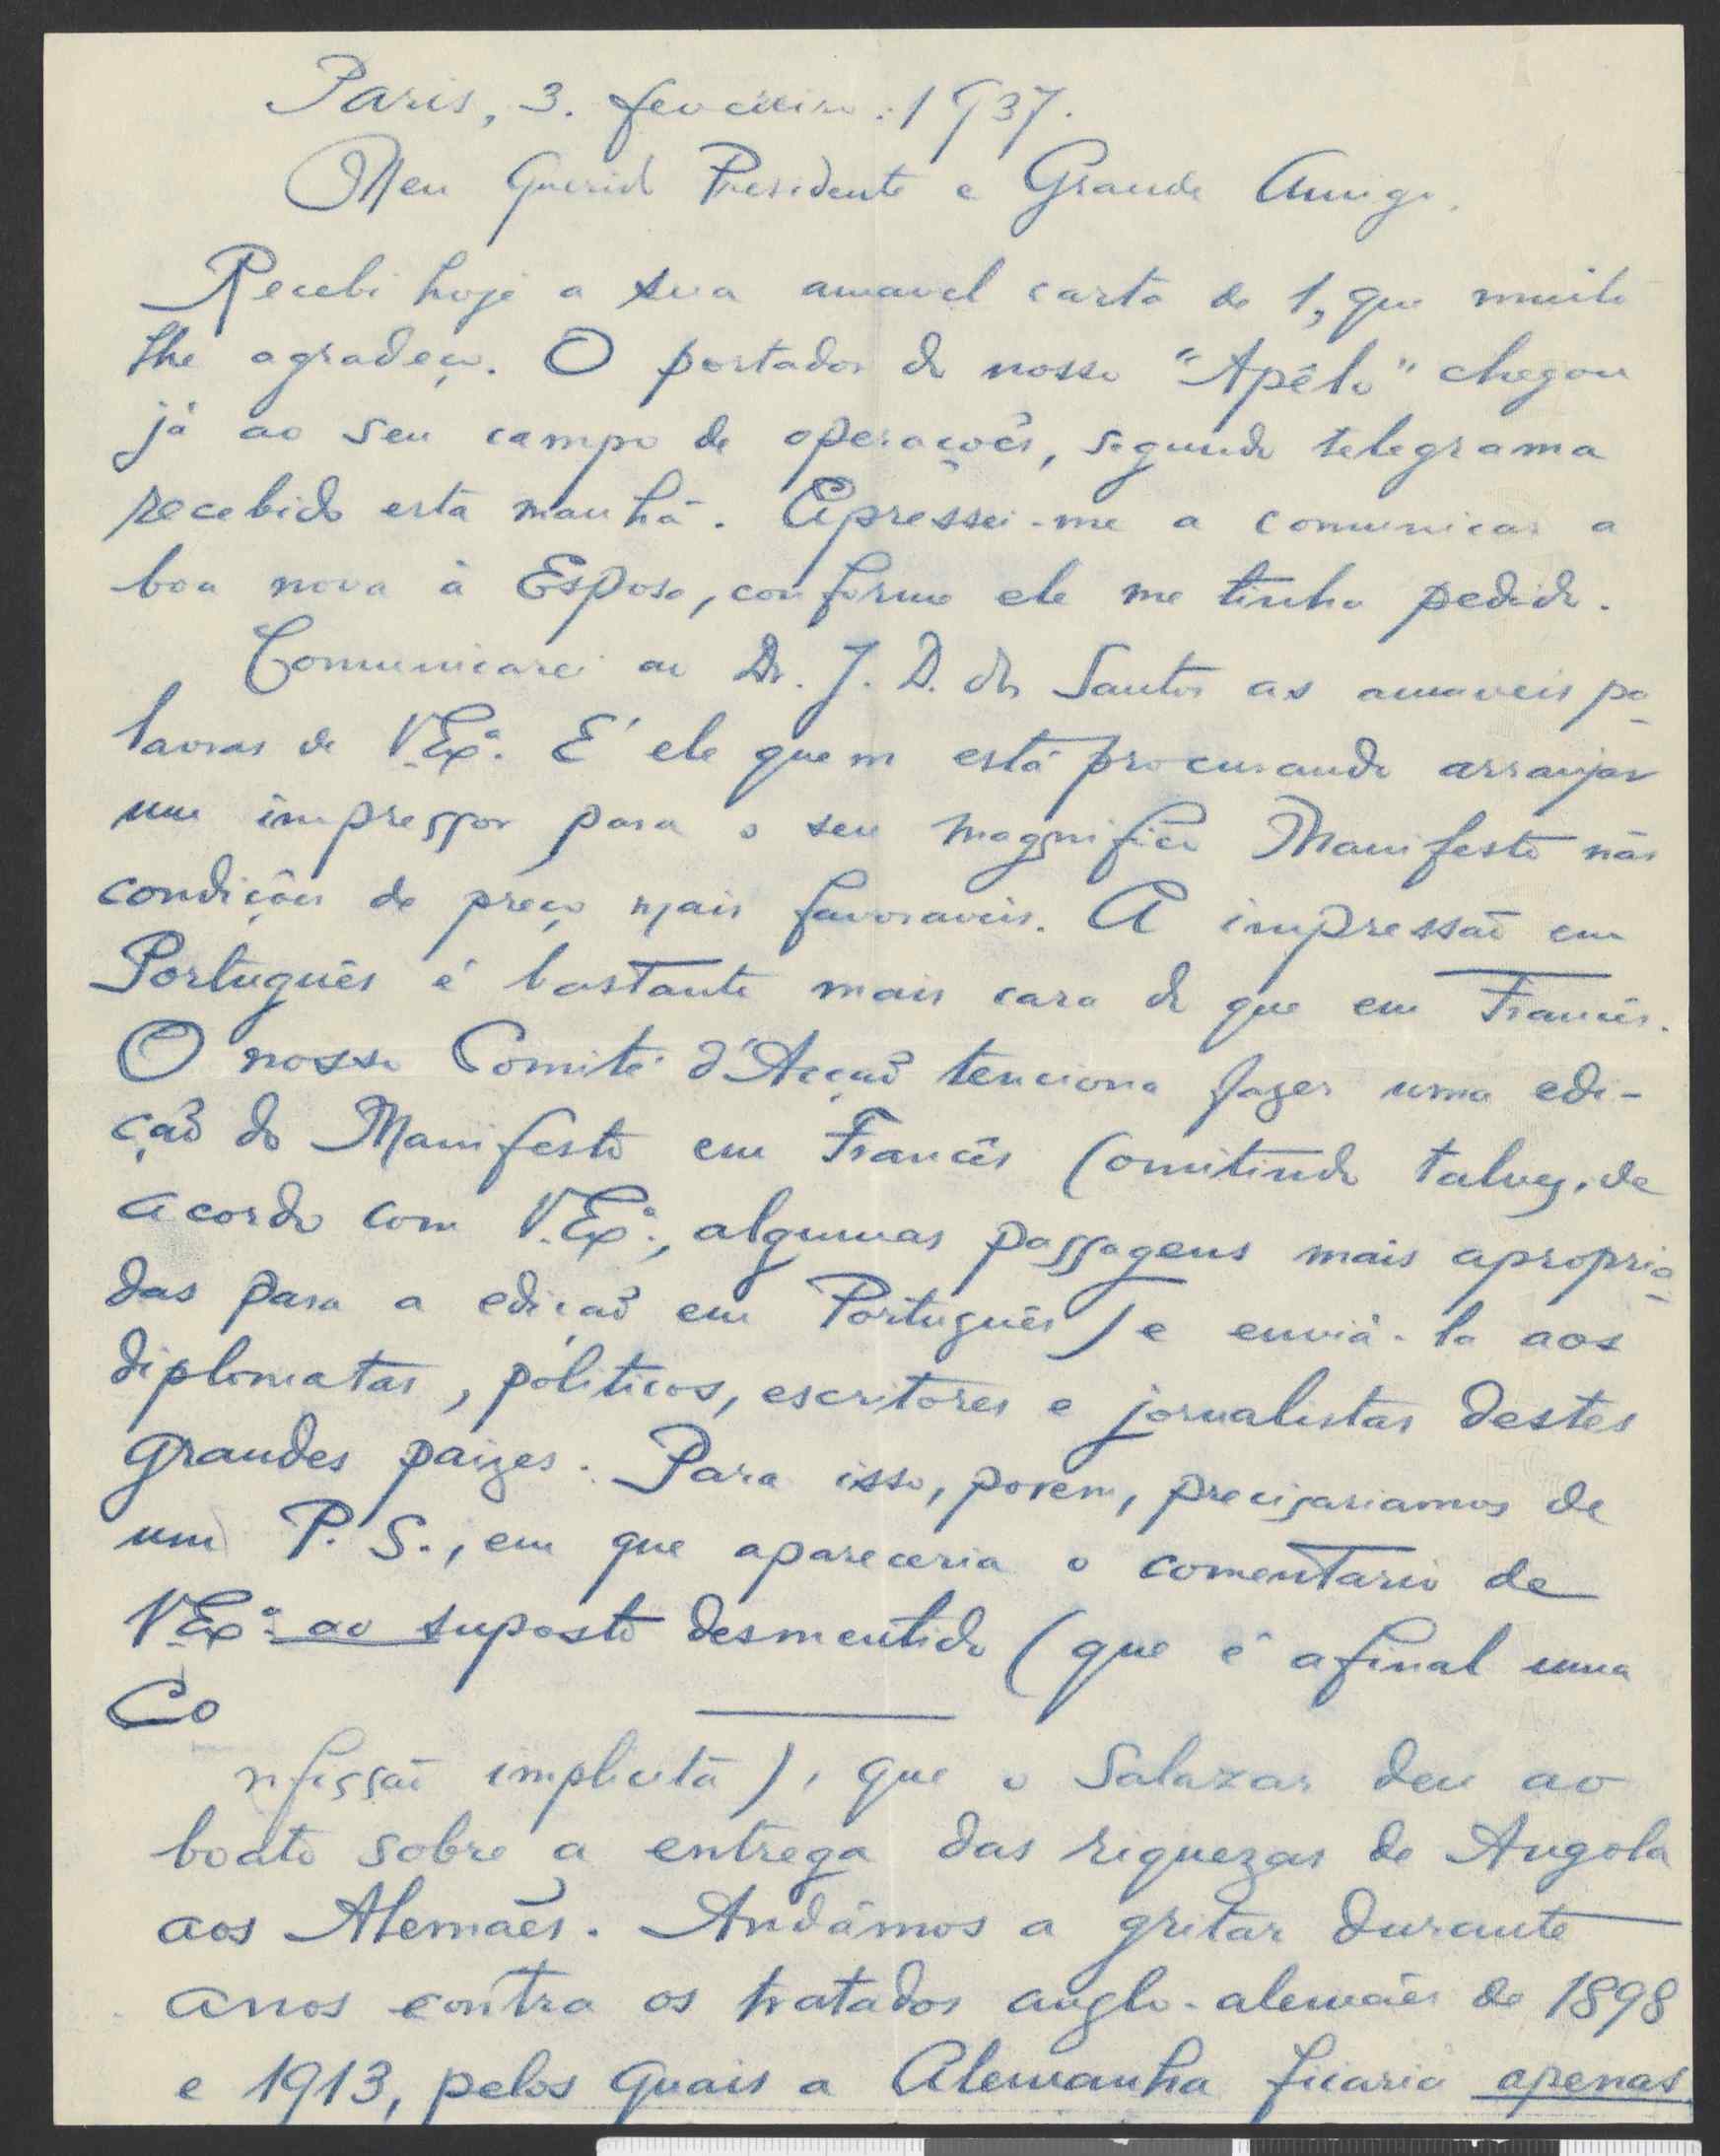 Paris, 3. fevereiro. 1937.
Meu Querido Presidente e Grande Amigo.
Recebi hoje a sua amavel carta de 1, que muito
lhe agradeço. O portador do nosso "Apêlo" chegou
já ao seu campo de operações, segundo telegrama
recebido esta manhã. Apressei-me a comunicar a
boa nova à Esposa, conforme ele me tinha pedido.
Comunicarei ao Dr. J. D. dos Santos as amaveis pa-
lavras de V. Exª. E' ele quem está procurando arranjar
um impressor para o seu magnifico Manifesto nas
condições de preço mais favoraveis. A impressão em
Português é bastante mais cara do que em Francês.
O nosso Comité d'Acção tenciona fazer uma edi-
ção do Manifesto em Francês (omitindo talvez, de
acordo com V. Exª., algumas passagens mais apropria-
das para a edição em Português) e enviá-la aos
diplomatas, politicos, escritores e jornalistas destes
grandes paizes. Para isso, porem, precisariamos de
um P. S., em que apareceria o comentario de
V. Exª. ao suposto desmentido (que é afinal uma
Co
nfissão implicita), que o Salazar deu ao
boato sobre a entrega das riquezas de Angola
aos Alemães. Andámos a gritar durante
anos contra os tratados anglo-alemães de 1898
e 1913, pelos quais a Alemanha ficaria apenas